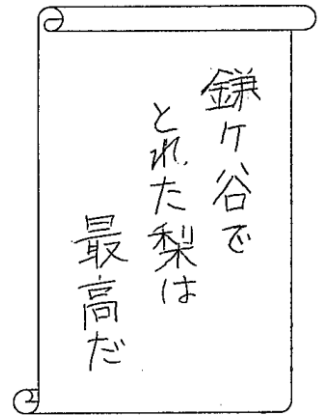 鎌ケ谷で
とれた梨は
最高だ